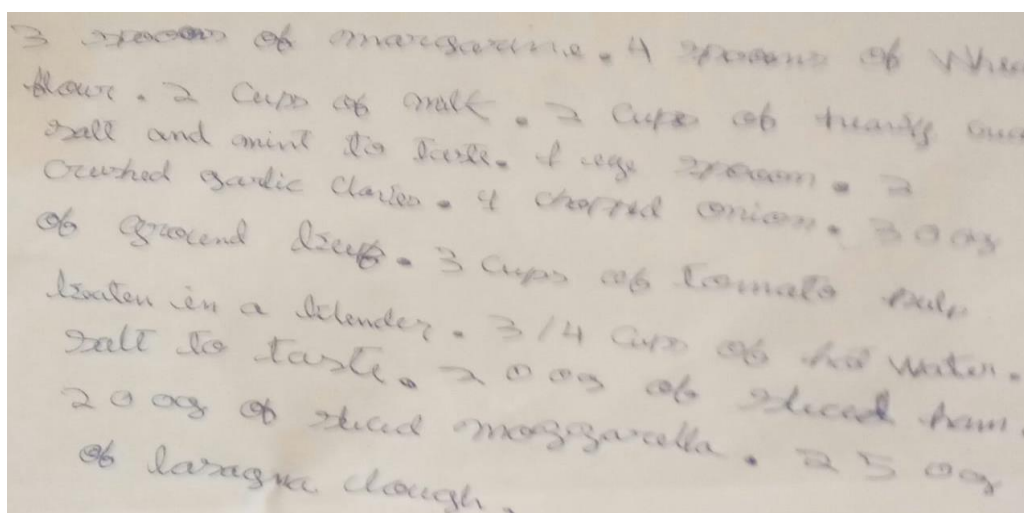 3 spoons of margarine. 4 spoons of Whea
flour. 2 Cups of milk. 2 Cups of
salt and mint to taste. 1 spoom. 2
Crushed garlic Claries. 4 chopped onion. 300g
of ground Beef. 3 Cups of tomato pulp
beaten in a blender. 3/4 Cups of hot water.
salt to taste. 200g of sliced ham.
200g of sliced mozzarella. 250g
of lasagna dough.